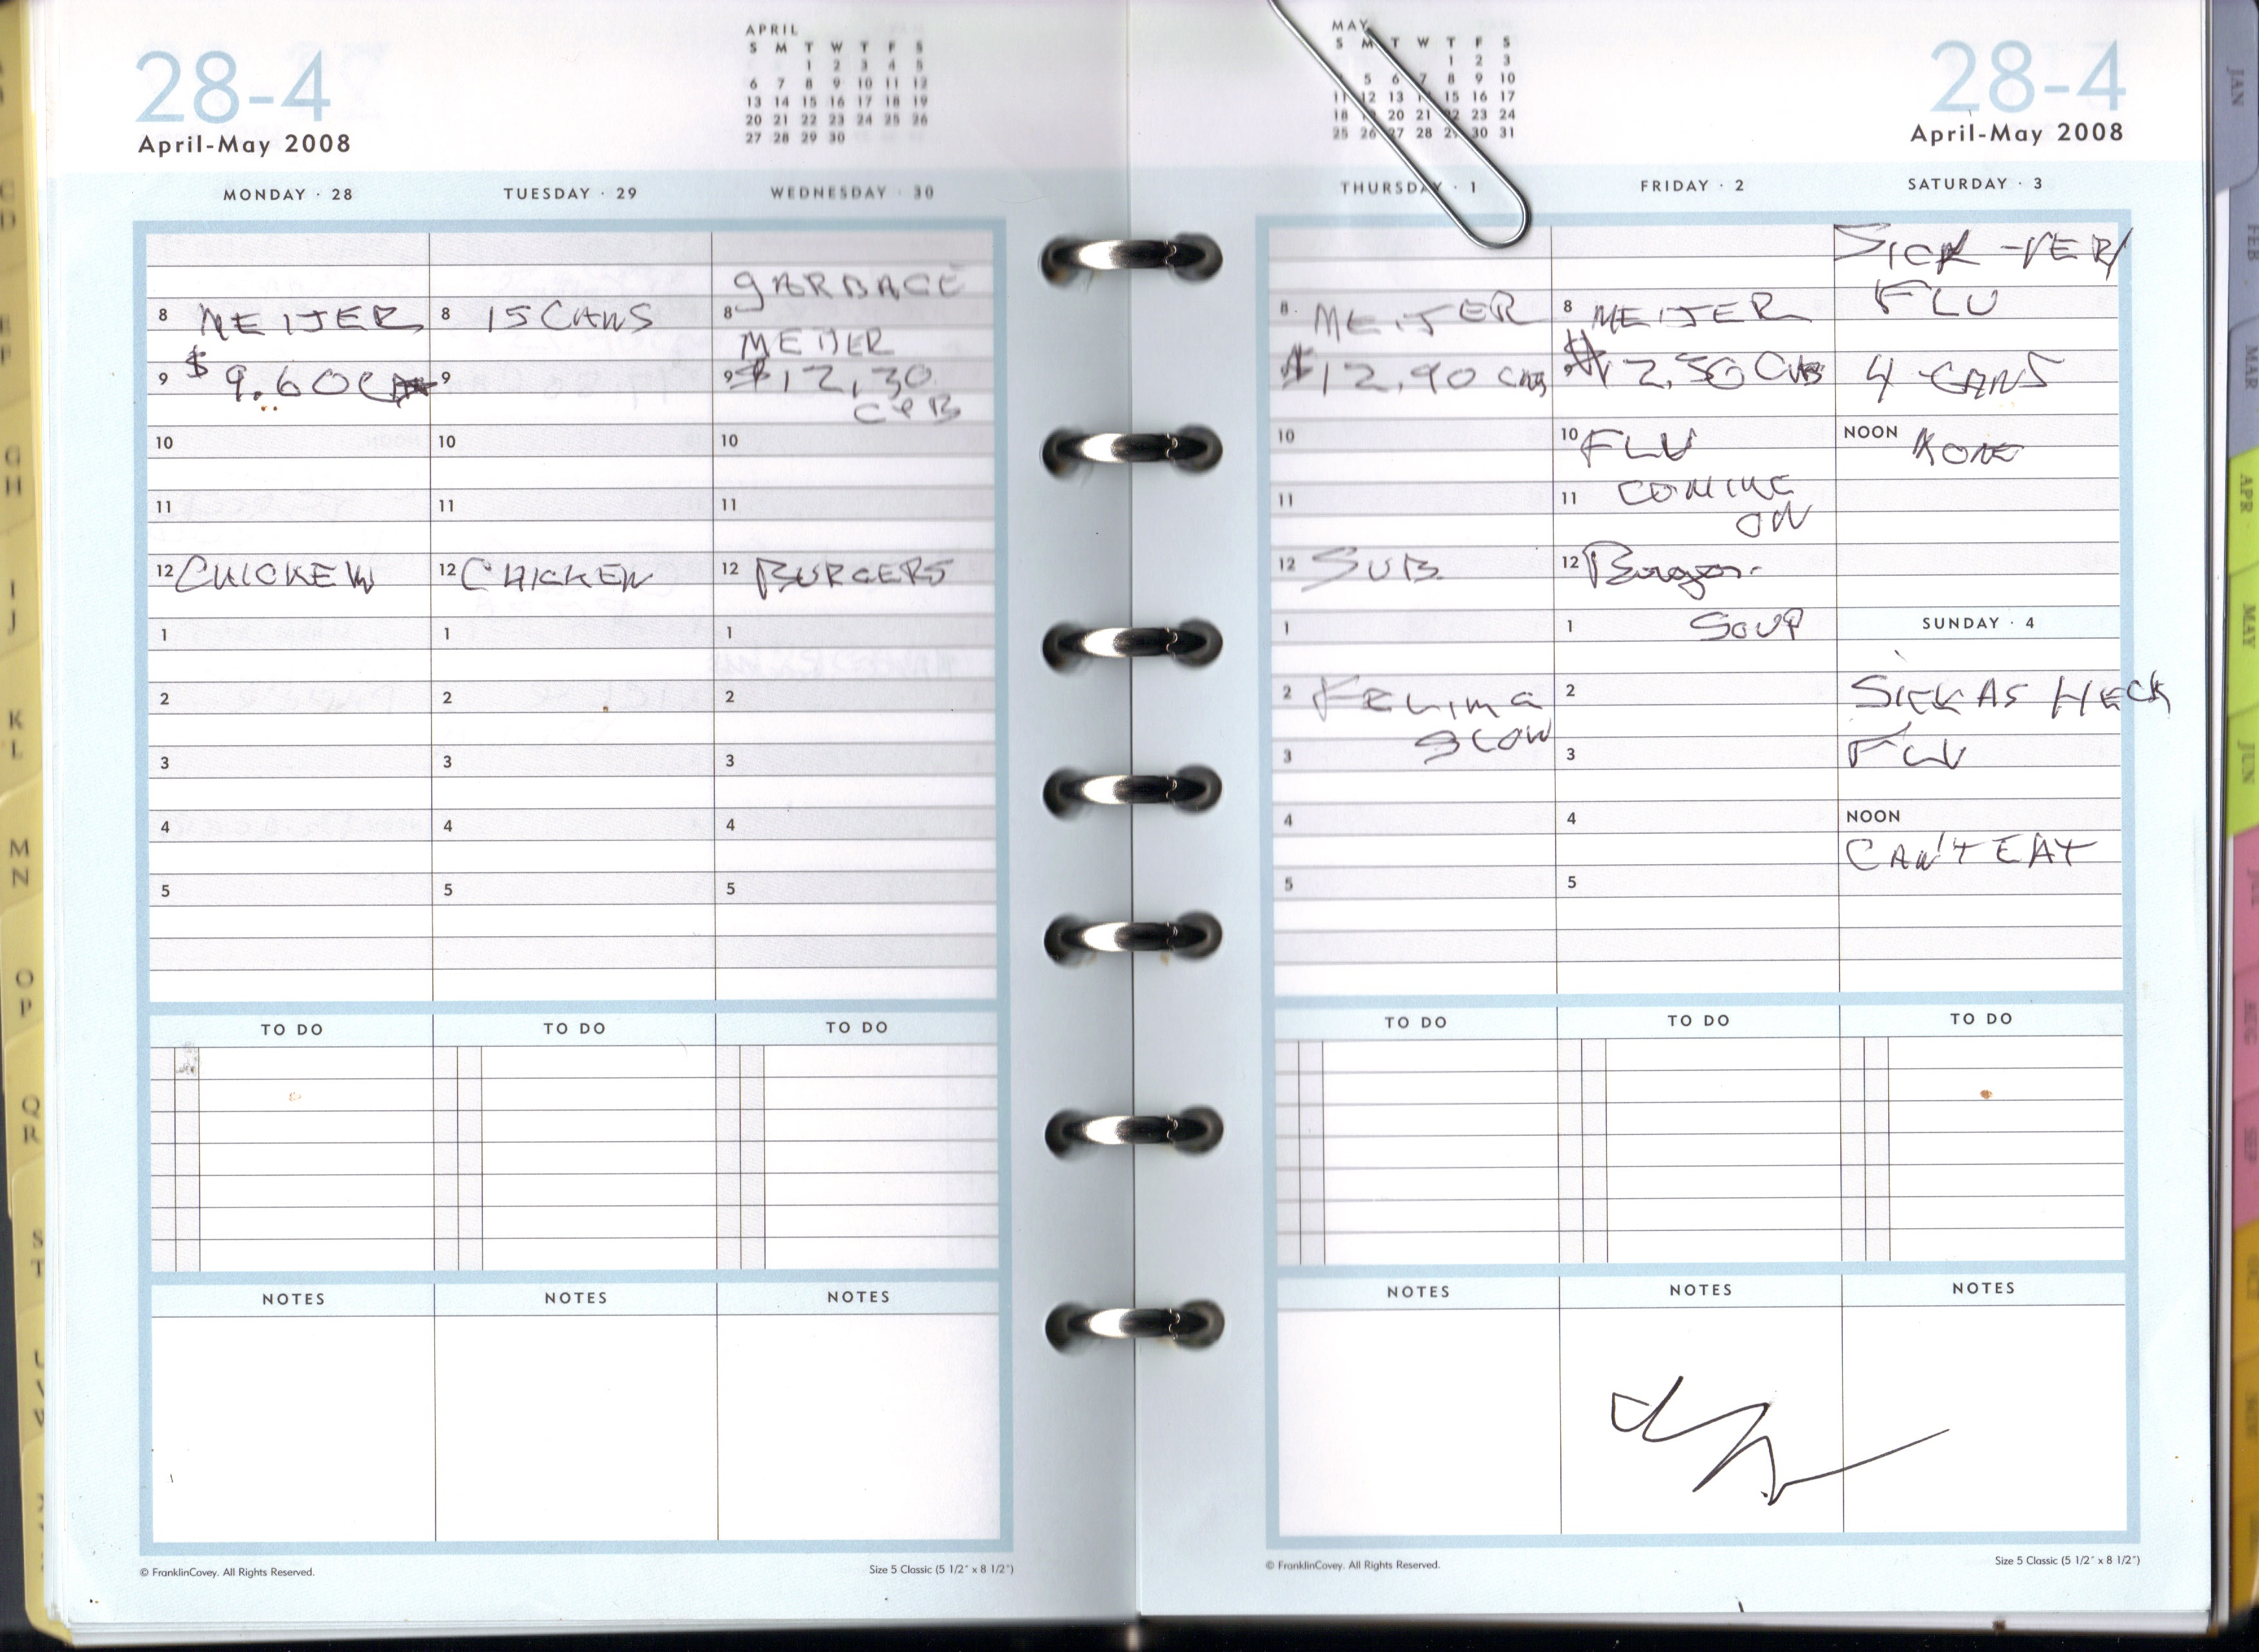 28-4
April-May 2008
APRIL
S M T W T F S
1 2 3 4 5
6 7 8 9 10 11 12
13 14 15 16 17 18 19
20 21 22 23 24 25 26
27 28 29 30
MONDAY · 28
8 MEIJER
$9.60
9
10
11
12 CHICKEN
1
2
3
4
5
TO DO
NOTES
TUESDAY · 29
8 15 CANS
9
10
11
12 CHICKEN
1
2
3
4
5
TO DO
NOTES
WEDNESDAY · 30
GARBAGE
8
MEIJER
9 $12,30
10
11
12 BURGERS
1
2
3
4
5
TO DO
NOTES
© FranklinCovey. All Rights Reserved.
Size 5 Classic (5 1/2" x 8 1/2")
MAY
S M T W T F S
1 2 3
5 6 7 8 9 10
11 12 13 15 16 17
18 20 21 22 23 24
25 26 27 28 29 30 31
28-4
April-May 2008
THURSDAY · 1
8 MEIJER
$12,90
10
11
12 SUB
1
2
3
4
5
TO DO
NOTES
FRIDAY · 2
8 MEIJER
10 FLU
11 COMING
ON
12
1 SOUP
2
3
4
5
TO DO
NOTES
SATURDAY · 3
SICK - VERY
FLU
4 CANS
NOON
SUNDAY · 4
SICK AS HECK
FLU
NOON
CAN'T EAT
TO DO
NOTES
© FranklinCovey. All Rights Reserved.
Size 5 Classic (5 1/2" x 8 1/2")
C
D
G
H
I
J
K
L
M
N
O
P
Q
R
S
T
JAN
FEB
MAR
APR
MAY
JUN